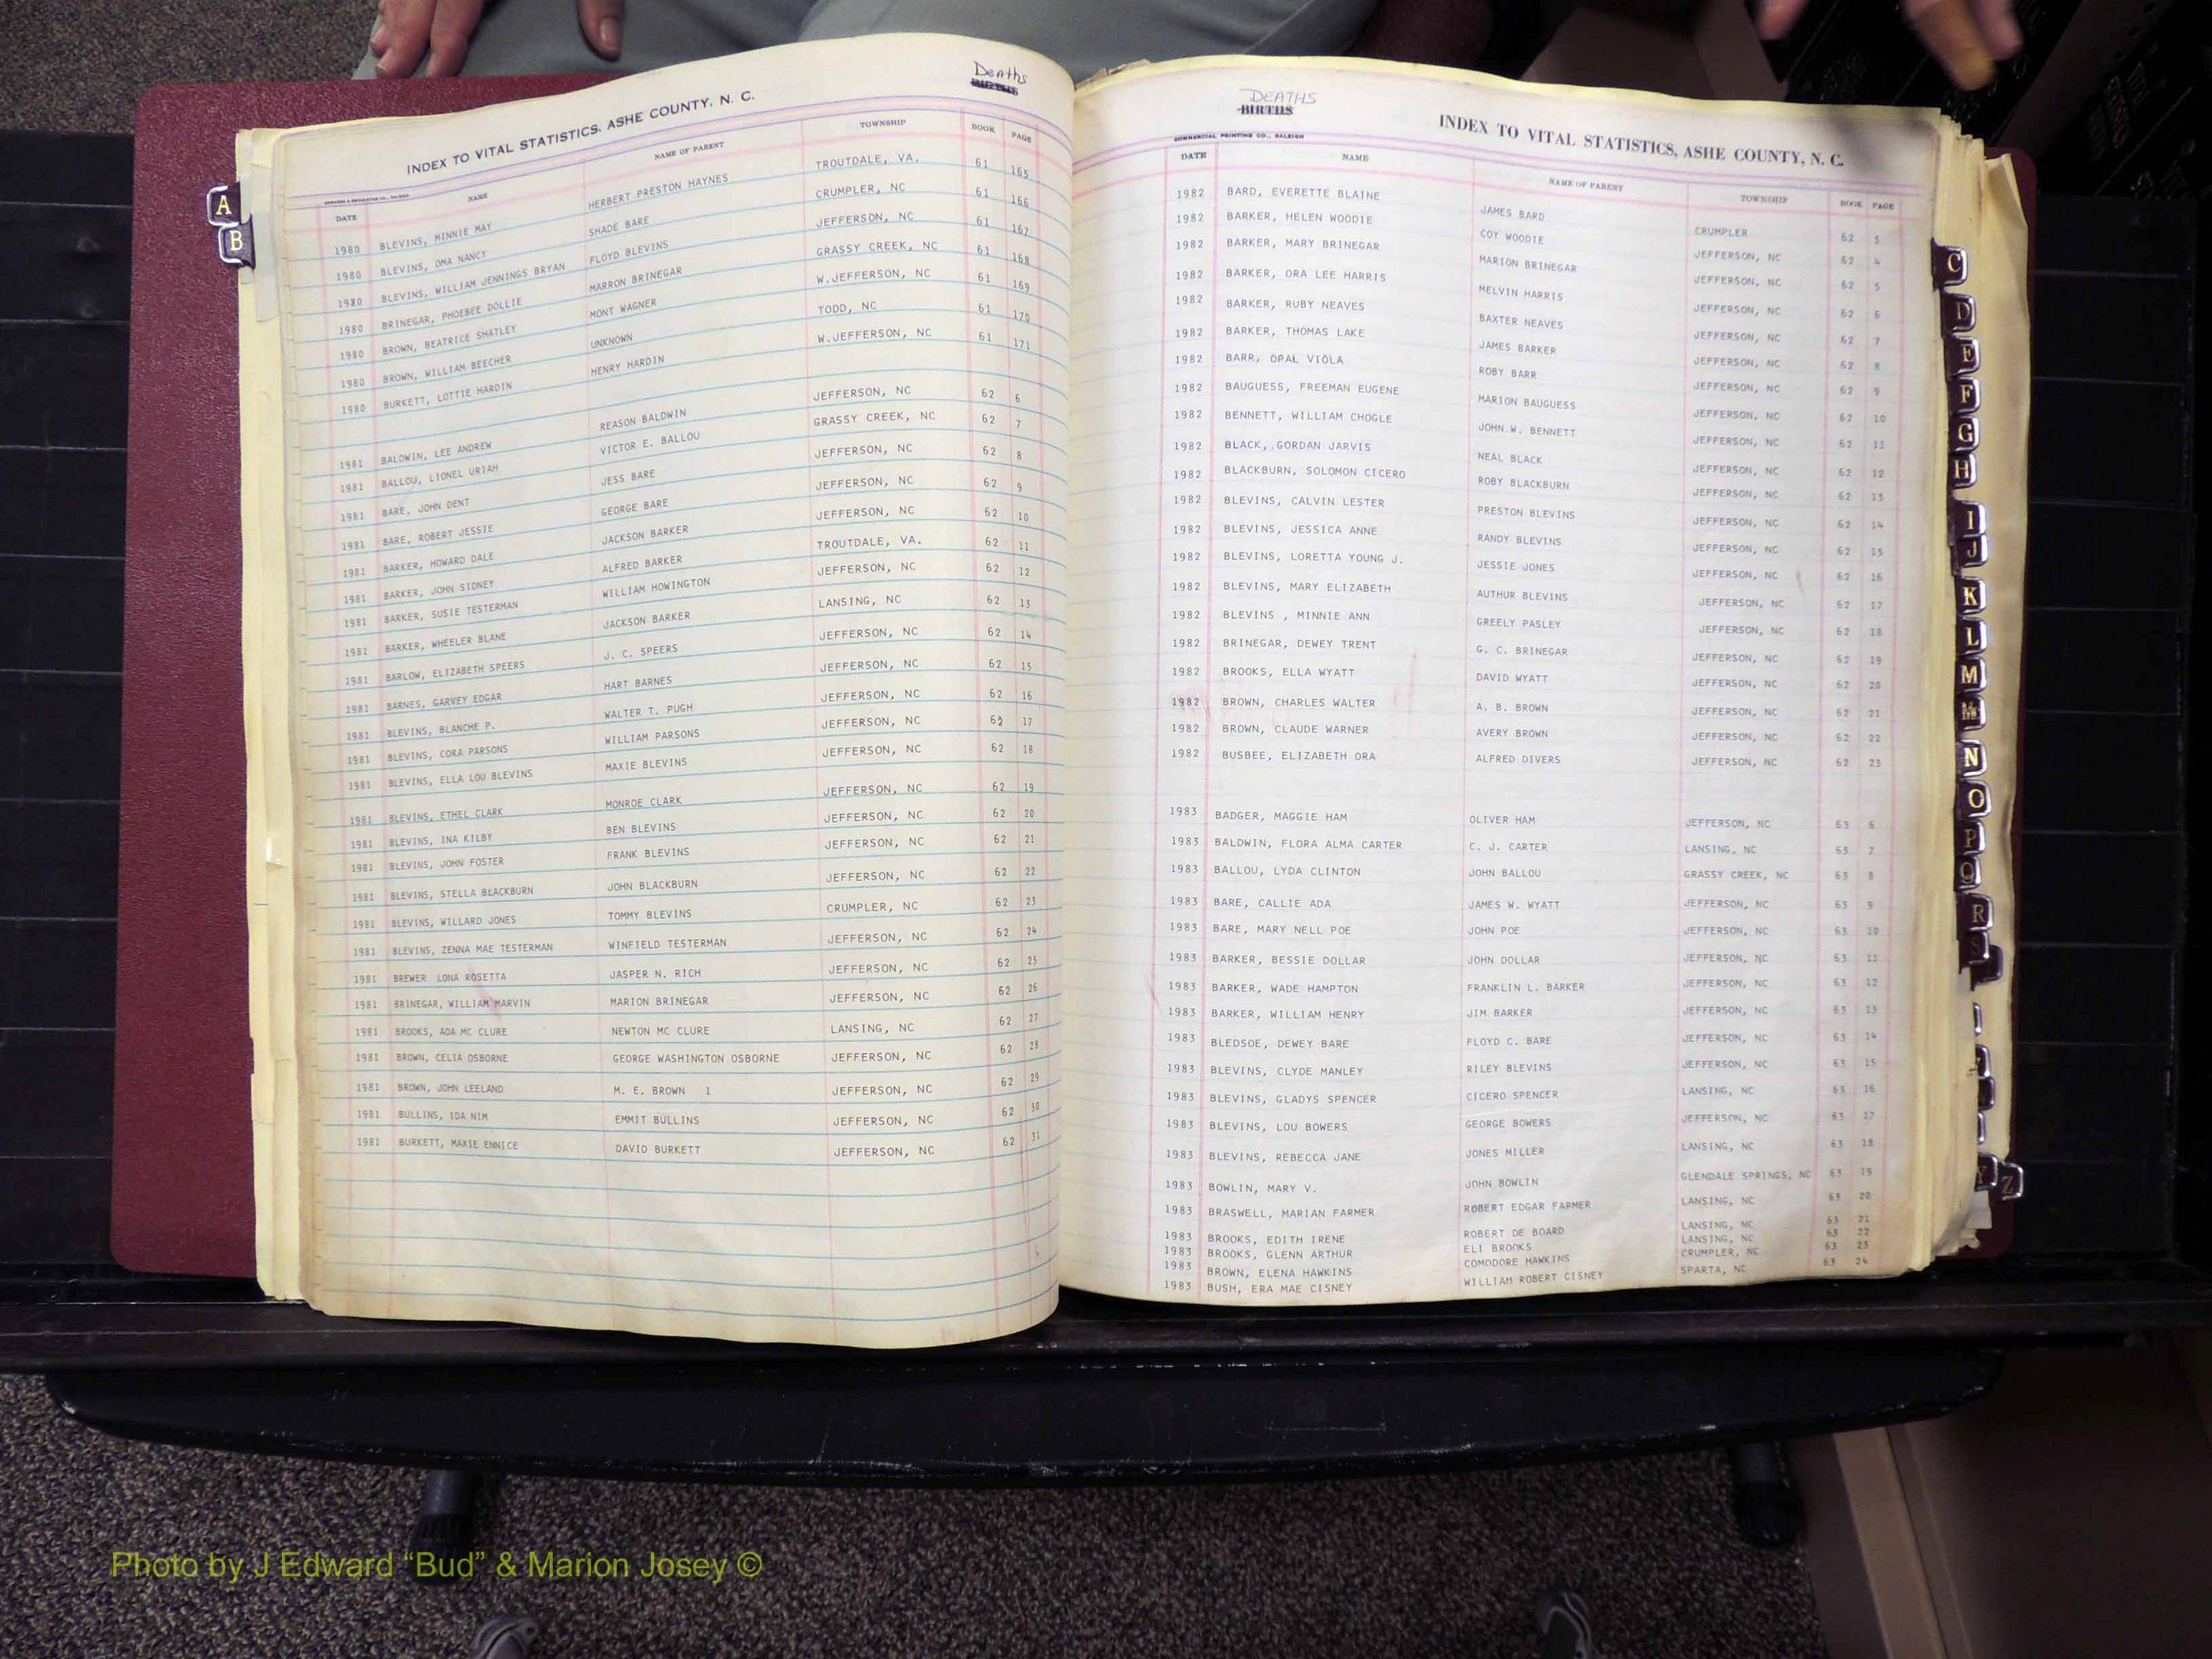 Deaths
BIRTHS
INDEX TO VITAL STATISTICS, ASHE COUNTY, N. C.
DATE NAME NAME OF PARENT TOWNSHIP BOOK PAGE
1980 BLEVINS, MINNIE MAY HERBERT PRESTON HAYNES TROUTDALE, VA. 61 165
1980 BLEVINS, OMA NANCY SHADE BARE CRUMPLER, NC 61 166
1980 BLEVINS, WILLIAM JENNINGS BRYAN FLOYD BLEVINS JEFFERSON, NC 61 167
1980 BRINEGAR, PHOEBEE DOLLIE MARRON BRINEGAR GRASSY CREEK, NC 61 168
1980 BROWN, BEATRICE SHATLEY MONT WAGNER W.JEFFERSON, NC 61 169
1980 BROWN, WILLIAM BEECHER UNKNOWN TODD, NC 61 170
1980 BURKETT, LOTTIE HARDIN HENRY HARDIN W.JEFFERSON, NC 61 171
1981 BALDWIN, LEE ANDREW REASON BALDWIN JEFFERSON, NC 62 6
1981 BALLOU, LIONEL URIAH VICTOR E. BALLOU GRASSY CREEK, NC 62 7
1981 BARE, JOHN DENT JESS BARE JEFFERSON, NC 62 8
1981 BARE, ROBERT JESSIE GEORGE BARE JEFFERSON, NC 62 9
1981 BARKER, HOWARD DALE JACKSON BARKER JEFFERSON, NC 62 10
1981 BARKER, JOHN SIDNEY ALFRED BARKER TROUTDALE, VA. 62 11
1981 BARKER, SUSIE TESTERMAN WILLIAM HOWINGTON JEFFERSON, NC 62 12
1981 BARKER, WHEELER BLANE JACKSON BARKER LANSING, NC 62 13
1981 BARLOW, ELIZABETH SPEERS J. C. SPEERS JEFFERSON, NC 62 14
1981 BARNES, GARVEY EDGAR HART BARNES JEFFERSON, NC 62 15
1981 BLEVINS, BLANCHE P. WALTER T. PUGH JEFFERSON, NC 62 16
1981 BLEVINS, CORA PARSONS WILLIAM PARSONS JEFFERSON, NC 62 17
1981 BLEVINS, ELLA LOU BLEVINS MAXIE BLEVINS JEFFERSON, NC 62 18
1981 BLEVINS, ETHEL CLARK MONROE CLARK JEFFERSON, NC 62 19
1981 BLEVINS, INA KILBY BEN BLEVINS JEFFERSON, NC 62 20
1981 BLEVINS, JOHN FOSTER FRANK BLEVINS JEFFERSON, NC 62 21
1981 BLEVINS, STELLA BLACKBURN JOHN BLACKBURN JEFFERSON, NC 62 22
1981 BLEVINS, WILLARD JONES TOMMY BLEVINS CRUMPLER, NC 62 23
1981 BLEVINS, ZENNA MAE TESTERMAN WINFIELD TESTERMAN JEFFERSON, NC 62 24
1981 BREWER LONA ROSETTA JASPER N. RICH JEFFERSON, NC 62 25
1981 BRINEGAR, WILLIAM MARVIN MARION BRINEGAR JEFFERSON, NC 62 26
1981 BROOKS, ADA MC CLURE NEWTON MC CLURE LANSING, NC 62 27
1981 BROWN, CELIA OSBORNE GEORGE WASHINGTON OSBORNE JEFFERSON, NC 62 28
1981 BROWN, JOHN LEELAND M. E. BROWN 1 JEFFERSON, NC 62 29
1981 BULLINS, IDA NIM EMMIT BULLINS JEFFERSON, NC 62 30
1981 BURKETT, MAXIE ENNICE DAVID BURKETT JEFFERSON, NC 62 31
DEATHS
BIRTHS
INDEX TO VITAL STATISTICS, ASHE COUNTY, N. C.
COMMERCIAL PRINTING CO., RALEIGH
DATE NAME NAME OF PARENT TOWNSHIP BOOK PAGE
1982 BARD, EVERETTE BLAINE JAMES BARD CRUMPLER 62 3
1982 BARKER, HELEN WOODIE COY WOODIE JEFFERSON, NC 62 4
1982 BARKER, MARY BRINEGAR MARION BRINEGAR JEFFERSON, NC 62 5
1982 BARKER, ORA LEE HARRIS MELVIN HARRIS JEFFERSON, NC 62 6
1982 BARKER, RUBY NEAVES BAXTER NEAVES JEFFERSON, NC 62 7
1982 BARKER, THOMAS LAKE JAMES BARKER JEFFERSON, NC 62 8
1982 BARR, OPAL VIOLA ROBY BARR JEFFERSON, NC 62 9
1982 BAUGUESS, FREEMAN EUGENE MARION BAUGUESS JEFFERSON, NC 62 10
1982 BENNETT, WILLIAM CHOGLE JOHN W. BENNETT JEFFERSON, NC 62 11
1982 BLACK, GORDAN JARVIS NEAL BLACK JEFFERSON, NC 62 12
1982 BLACKBURN, SOLOMON CICERO ROBY BLACKBURN JEFFERSON, NC 62 13
1982 BLEVINS, CALVIN LESTER PRESTON BLEVINS JEFFERSON, NC 62 14
1982 BLEVINS, JESSICA ANNE RANDY BLEVINS JEFFERSON, NC 62 15
1982 BLEVINS, LORETTA YOUNG J. JESSIE JONES JEFFERSON, NC 62 16
1982 BLEVINS, MARY ELIZABETH AUTHUR BLEVINS JEFFERSON, NC 62 17
1982 BLEVINS , MINNIE ANN GREELY PASLEY JEFFERSON, NC 62 18
1982 BRINEGAR, DEWEY TRENT G. C. BRINEGAR JEFFERSON, NC 62 19
1982 BROOKS, ELLA WYATT DAVID WYATT JEFFERSON, NC 62 20
1982 BROWN, CHARLES WALTER A. B. BROWN JEFFERSON, NC 62 21
1982 BROWN, CLAUDE WARNER AVERY BROWN JEFFERSON, NC 62 22
1982 BUSBEE, ELIZABETH ORA ALFRED DIVERS JEFFERSON, NC 62 23
1983 BADGER, MAGGIE HAM OLIVER HAM JEFFERSON, NC 63 6
1983 BALDWIN, FLORA ALMA CARTER C. J. CARTER LANSING, NC 63 7
1983 BALLOU, LYDA CLINTON JOHN BALLOU GRASSY CREEK, NC 63 8
1983 BARE, CALLIE ADA JAMES W. WYATT JEFFERSON, NC 63 9
1983 BARE, MARY NELL POE JOHN POE JEFFERSON, NC 63 10
1983 BARKER, BESSIE DOLLAR JOHN DOLLAR JEFFERSON, NC 63 11
1983 BARKER, WADE HAMPTON FRANKLIN L. BARKER JEFFERSON, NC 63 12
1983 BARKER, WILLIAM HENRY JIM BARKER JEFFERSON, NC 63 13
1983 BLEDSOE, DEWEY BARE FLOYD C. BARE JEFFERSON, NC 63 14
1983 BLEVINS, CLYDE MANLEY RILEY BLEVINS JEFFERSON, NC 63 15
1983 BLEVINS, GLADYS SPENCER CICERO SPENCER LANSING, NC 63 16
1983 BLEVINS, LOU BOWERS GEORGE BOWERS JEFFERSON, NC 63 17
1983 BLEVINS, REBECCA JANE JONES MILLER LANSING, NC 63 18
1983 BOWLIN, MARY V. JOHN BOWLIN GLENDALE SPRINGS, NC 63 19
1983 BRASWELL, MARIAN FARMER ROBERT EDGAR FARMER LANSING, NC 63 20
1983 BROOKS, EDITH IRENE ROBERT DE BOARD LANSING, NC 63 21
1983 BROOKS, GLENN ARTHUR ELI BROOKS LANSING, NC 63 22
1983 BROWN, ELENA HAWKINS COMODORE HAWKINS CRUMPLER, NC 63 23
1983 BUSH, ERA MAE CISNEY WILLIAM ROBERT CISNEY SPARTA, NC 63 24
A
B
C
D
E
F
G
H
I
J
K
L
M
Mc
N
O
P
Q
R
S
Y
Z
Photo by J Edward “Bud” & Marion Josey ©